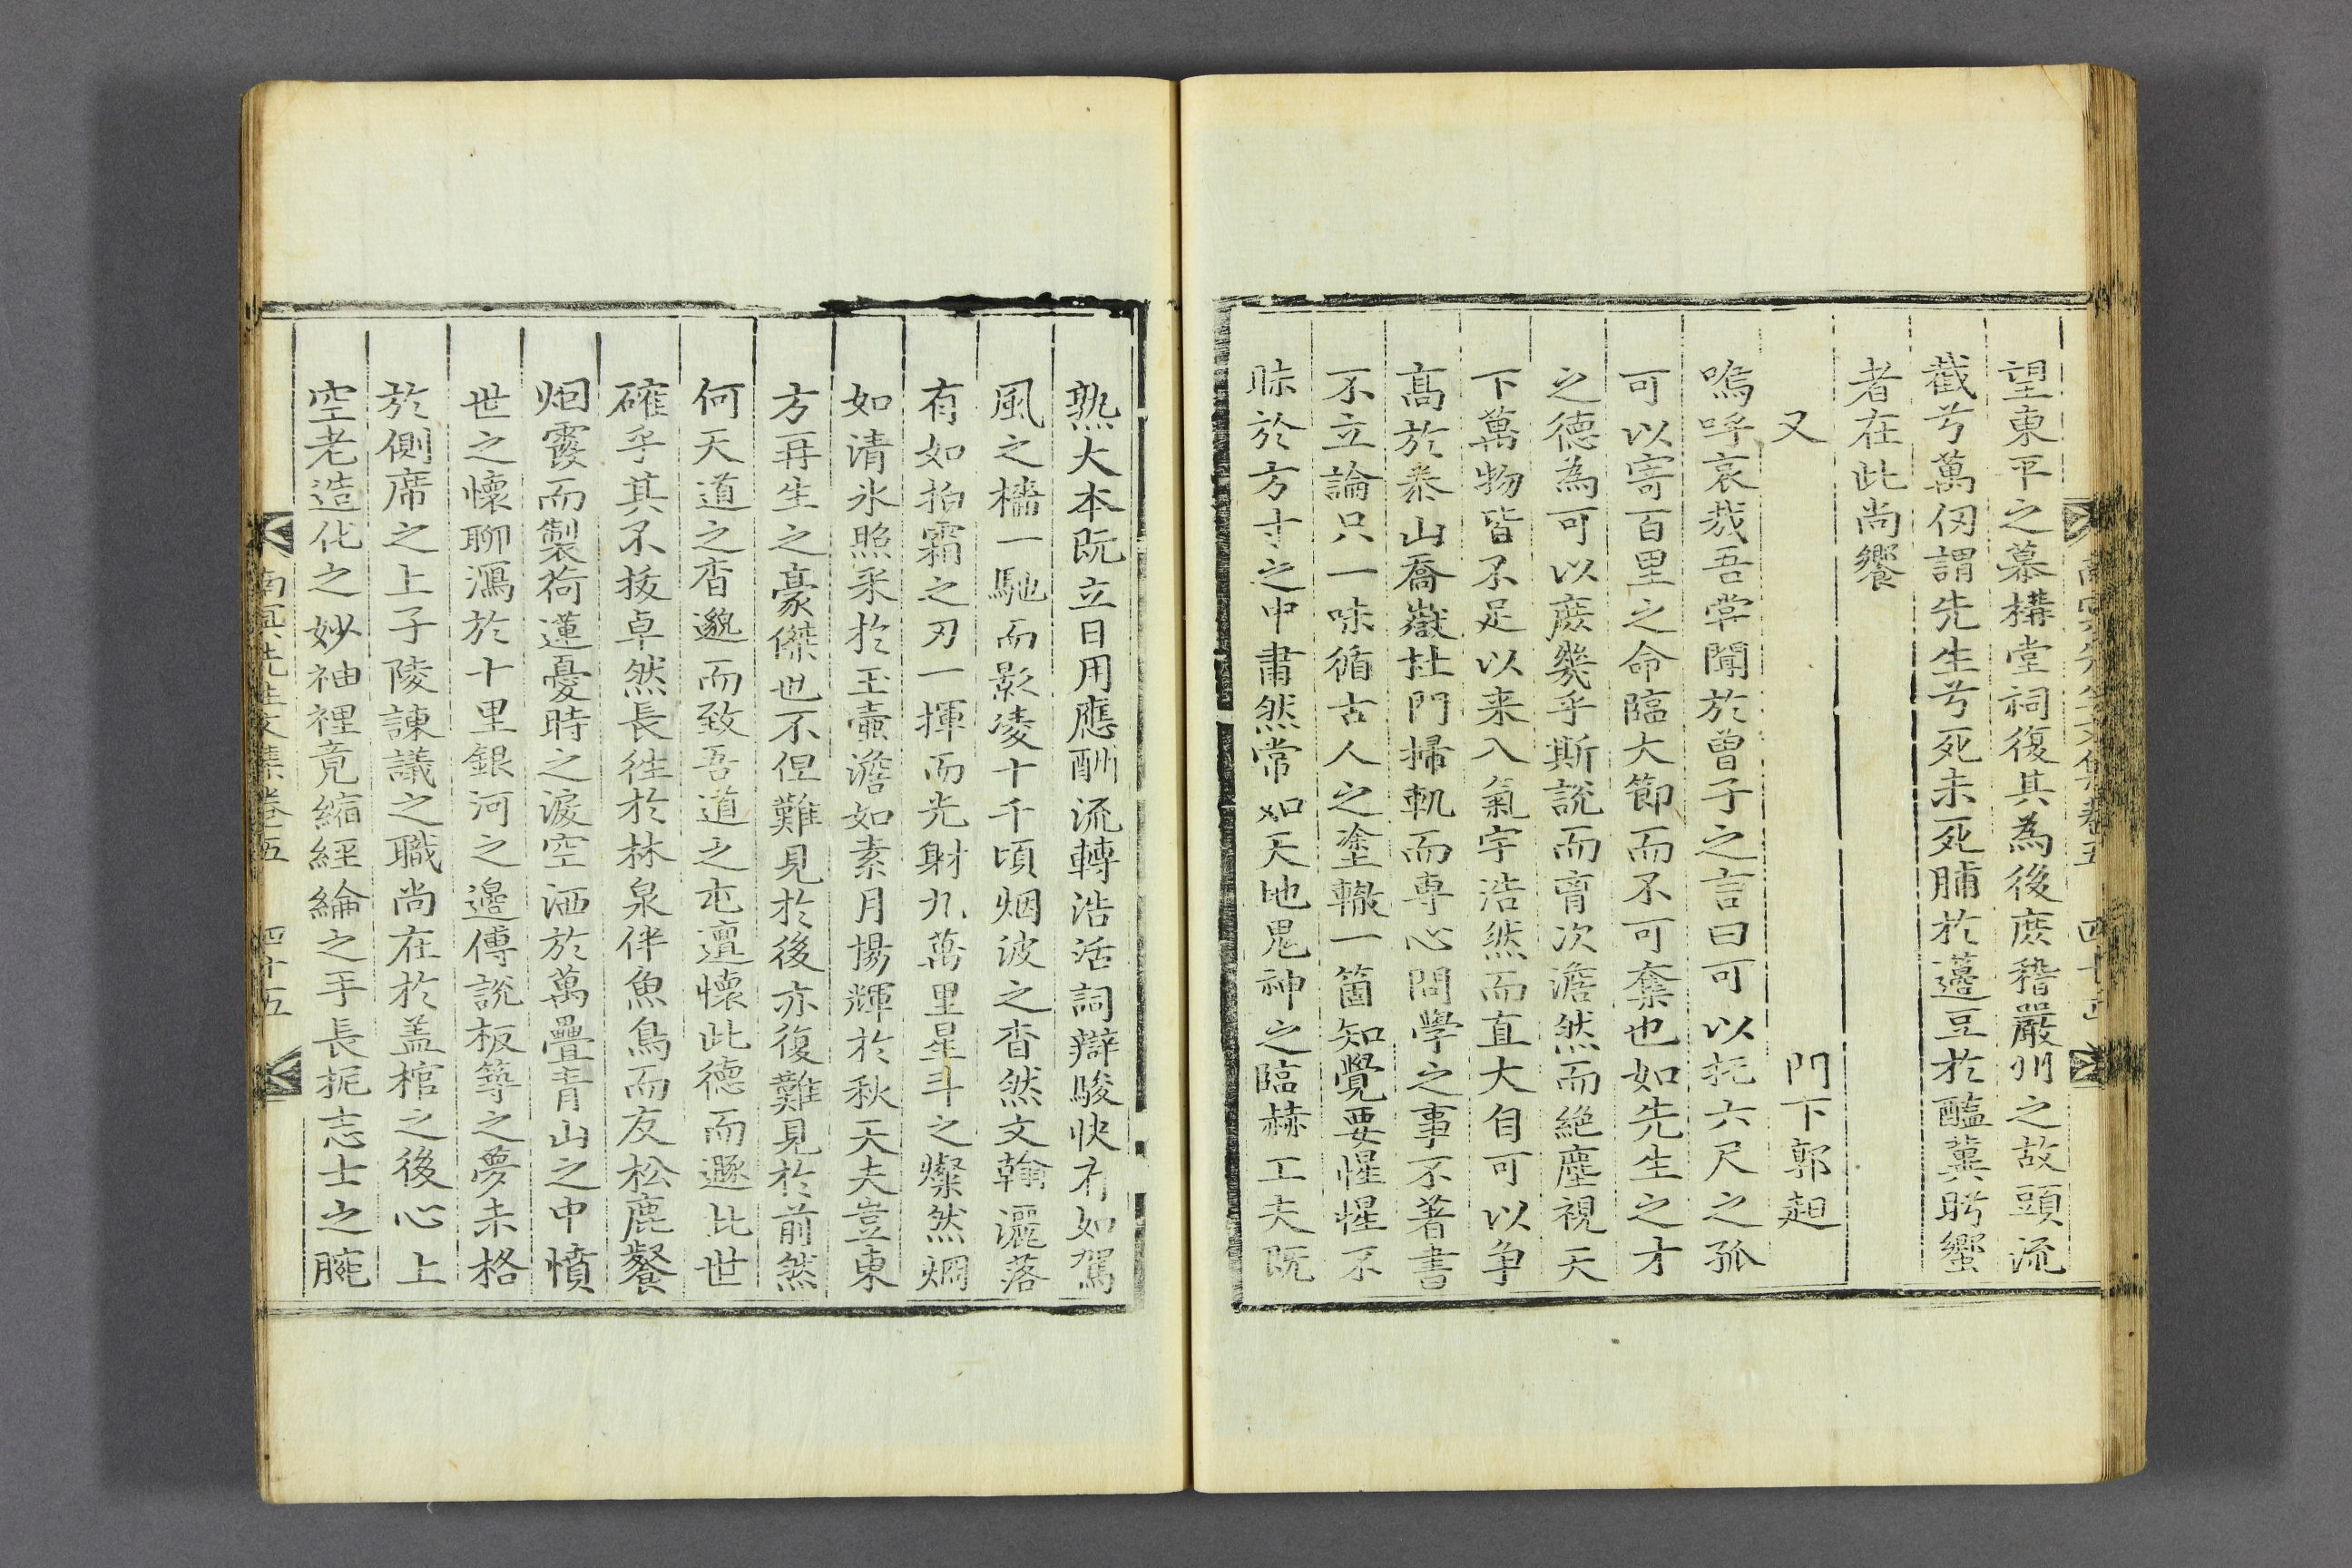 望東平之墓構堂祠復其為後庶稽嚴州之故頭流
截兮萬仞謂先生兮死未死脯於籩豆於醢冀肹蠁
者在此尚饗
又
門下郭䞓
嗚呼哀哉吾甞聞於曾子之言曰可以托六尺之孤
可以寄百里之命臨大節而不可奪也如先生之才
之德為可以庶幾乎斯說而胷次澹然而絶塵視天
下萬物皆不足以来入氣宇浩然而直大自可以争
髙於泰山喬嶽杜門掃軌而專心問學之事不著書
不立論只一味循古人之塗轍一箇知覺要惺惺不
昧於方寸之中肅然常如天地鬼神之臨赫工夫既
熟大本既立日用應酬流轉浩活詞辯駿快有如駕
風之檣一馳而影凌十千頃烟波之杳然文翰灑落
有如拍霜之刃一揮而光射九萬里星斗之燦然烱
如清氷照采於玉壷澹如素月揚輝於秋天夫豈東
方再生之豪傑世不但難見於後亦復難見於前然
何天道之杳邈而致吾道之屯邅懷此德而遯此世
確乎其不拔卓然長徃於林泉伴魚鳥而友松鹿餐
烟霞而製荷蓮憂時之淚空洒於萬疊青山之中憤
世之懷聊瀉於十里銀河之邊傅說板築之夢未格
於側席之上子陵諫議之職尚在於盖棺之後心上
空老造化之妙袖裡竟縮經綸之手長扼志士之腕
南冥先生文集卷五 四十五